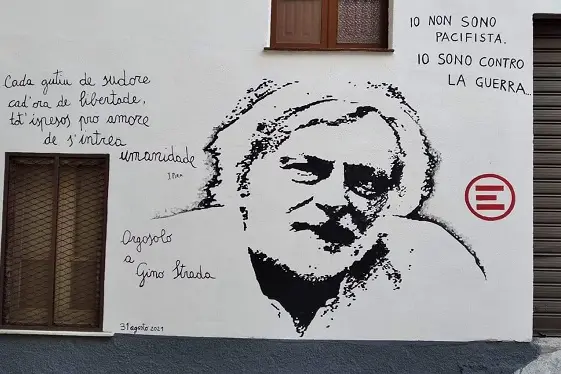 IO NON SONO
PACIFISTA.
IO SONO CONTRO
LA GUERRA...
Cada gutiu de sudore
cad'ora de libertade,
tot'ispesos pro amore
de s'intrea
umanidade
Orgosolo
a
Gino Strada
31 agosto 2021